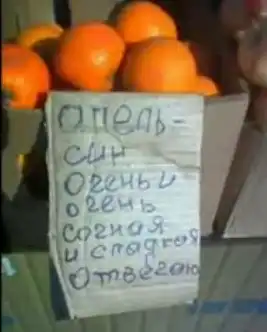 опель-
син
очень и
очень
сочная
и сладкая
отвечаю